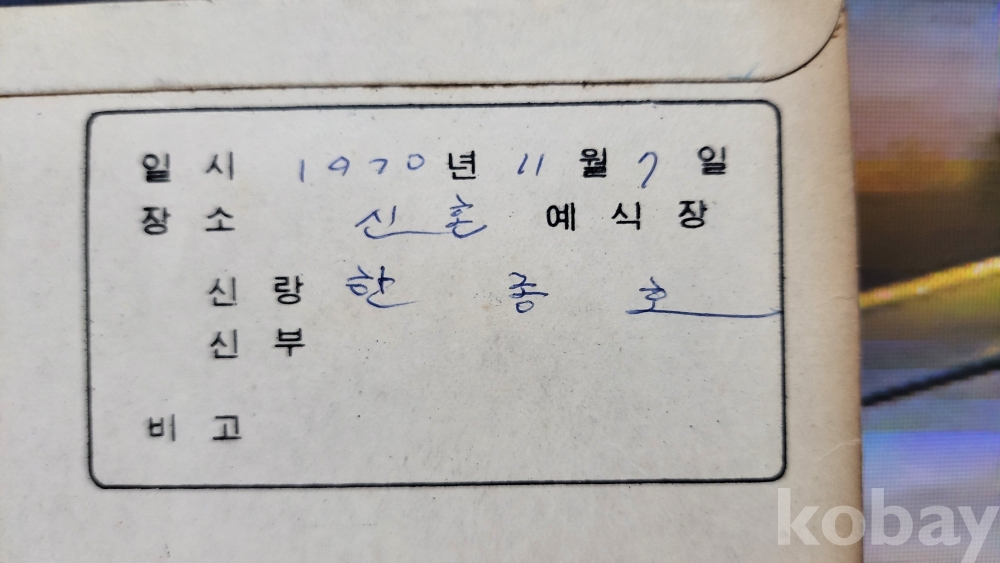 일 시 1970년 11월 7일
장 소 신혼 예식장
신 랑 한 종 호
신 부
비 고
kobay